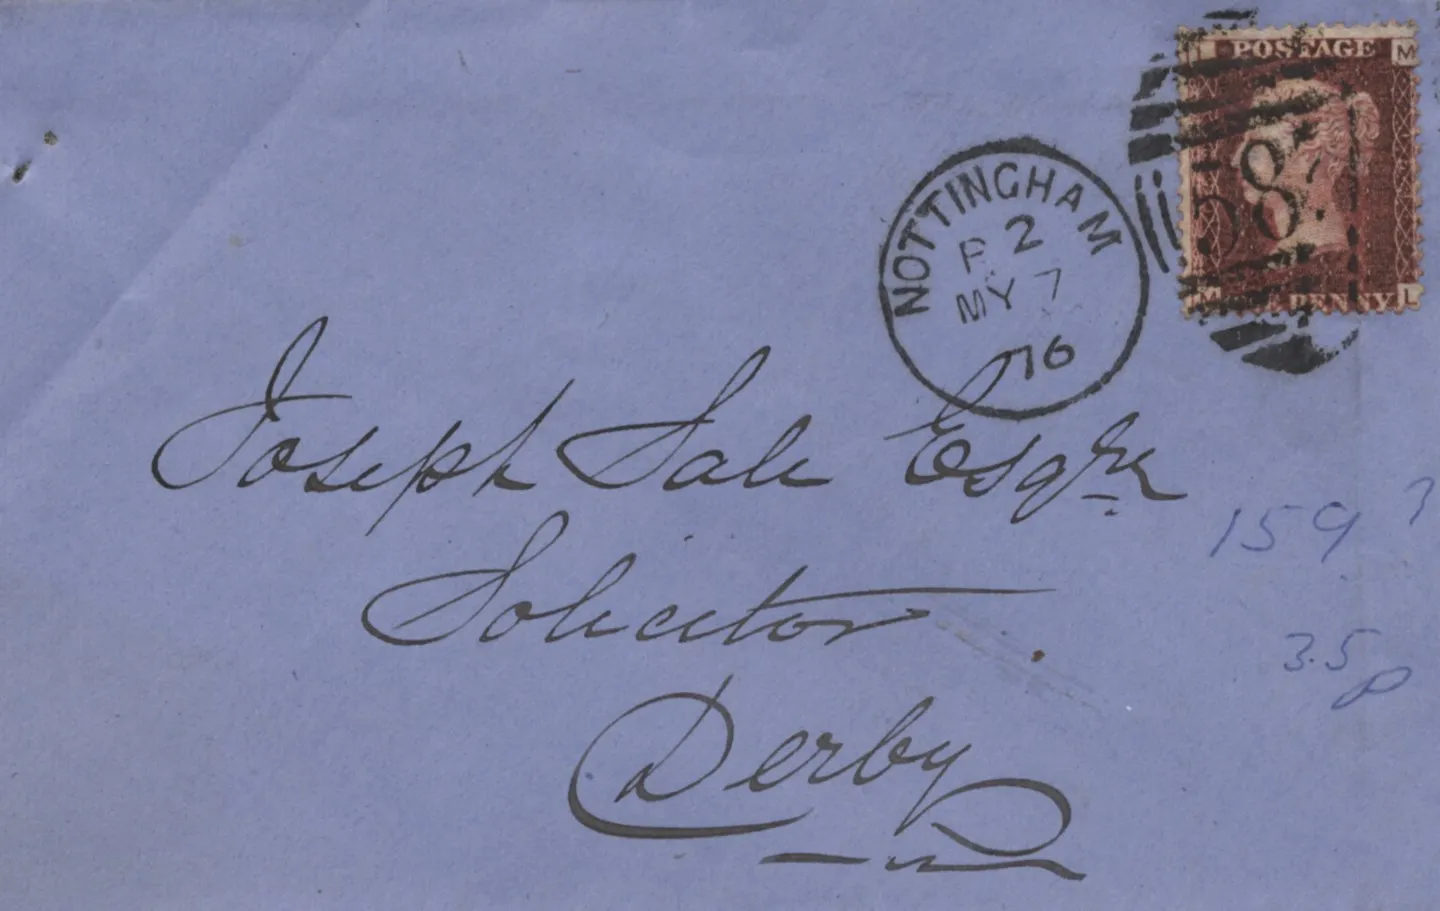 POSTAGE M
587
NOTTINGHAM
F 2
MY 7
76
M PENNY L
Joseph Sale Esqre
Solicitor
Derby
159 ?
3.5 p